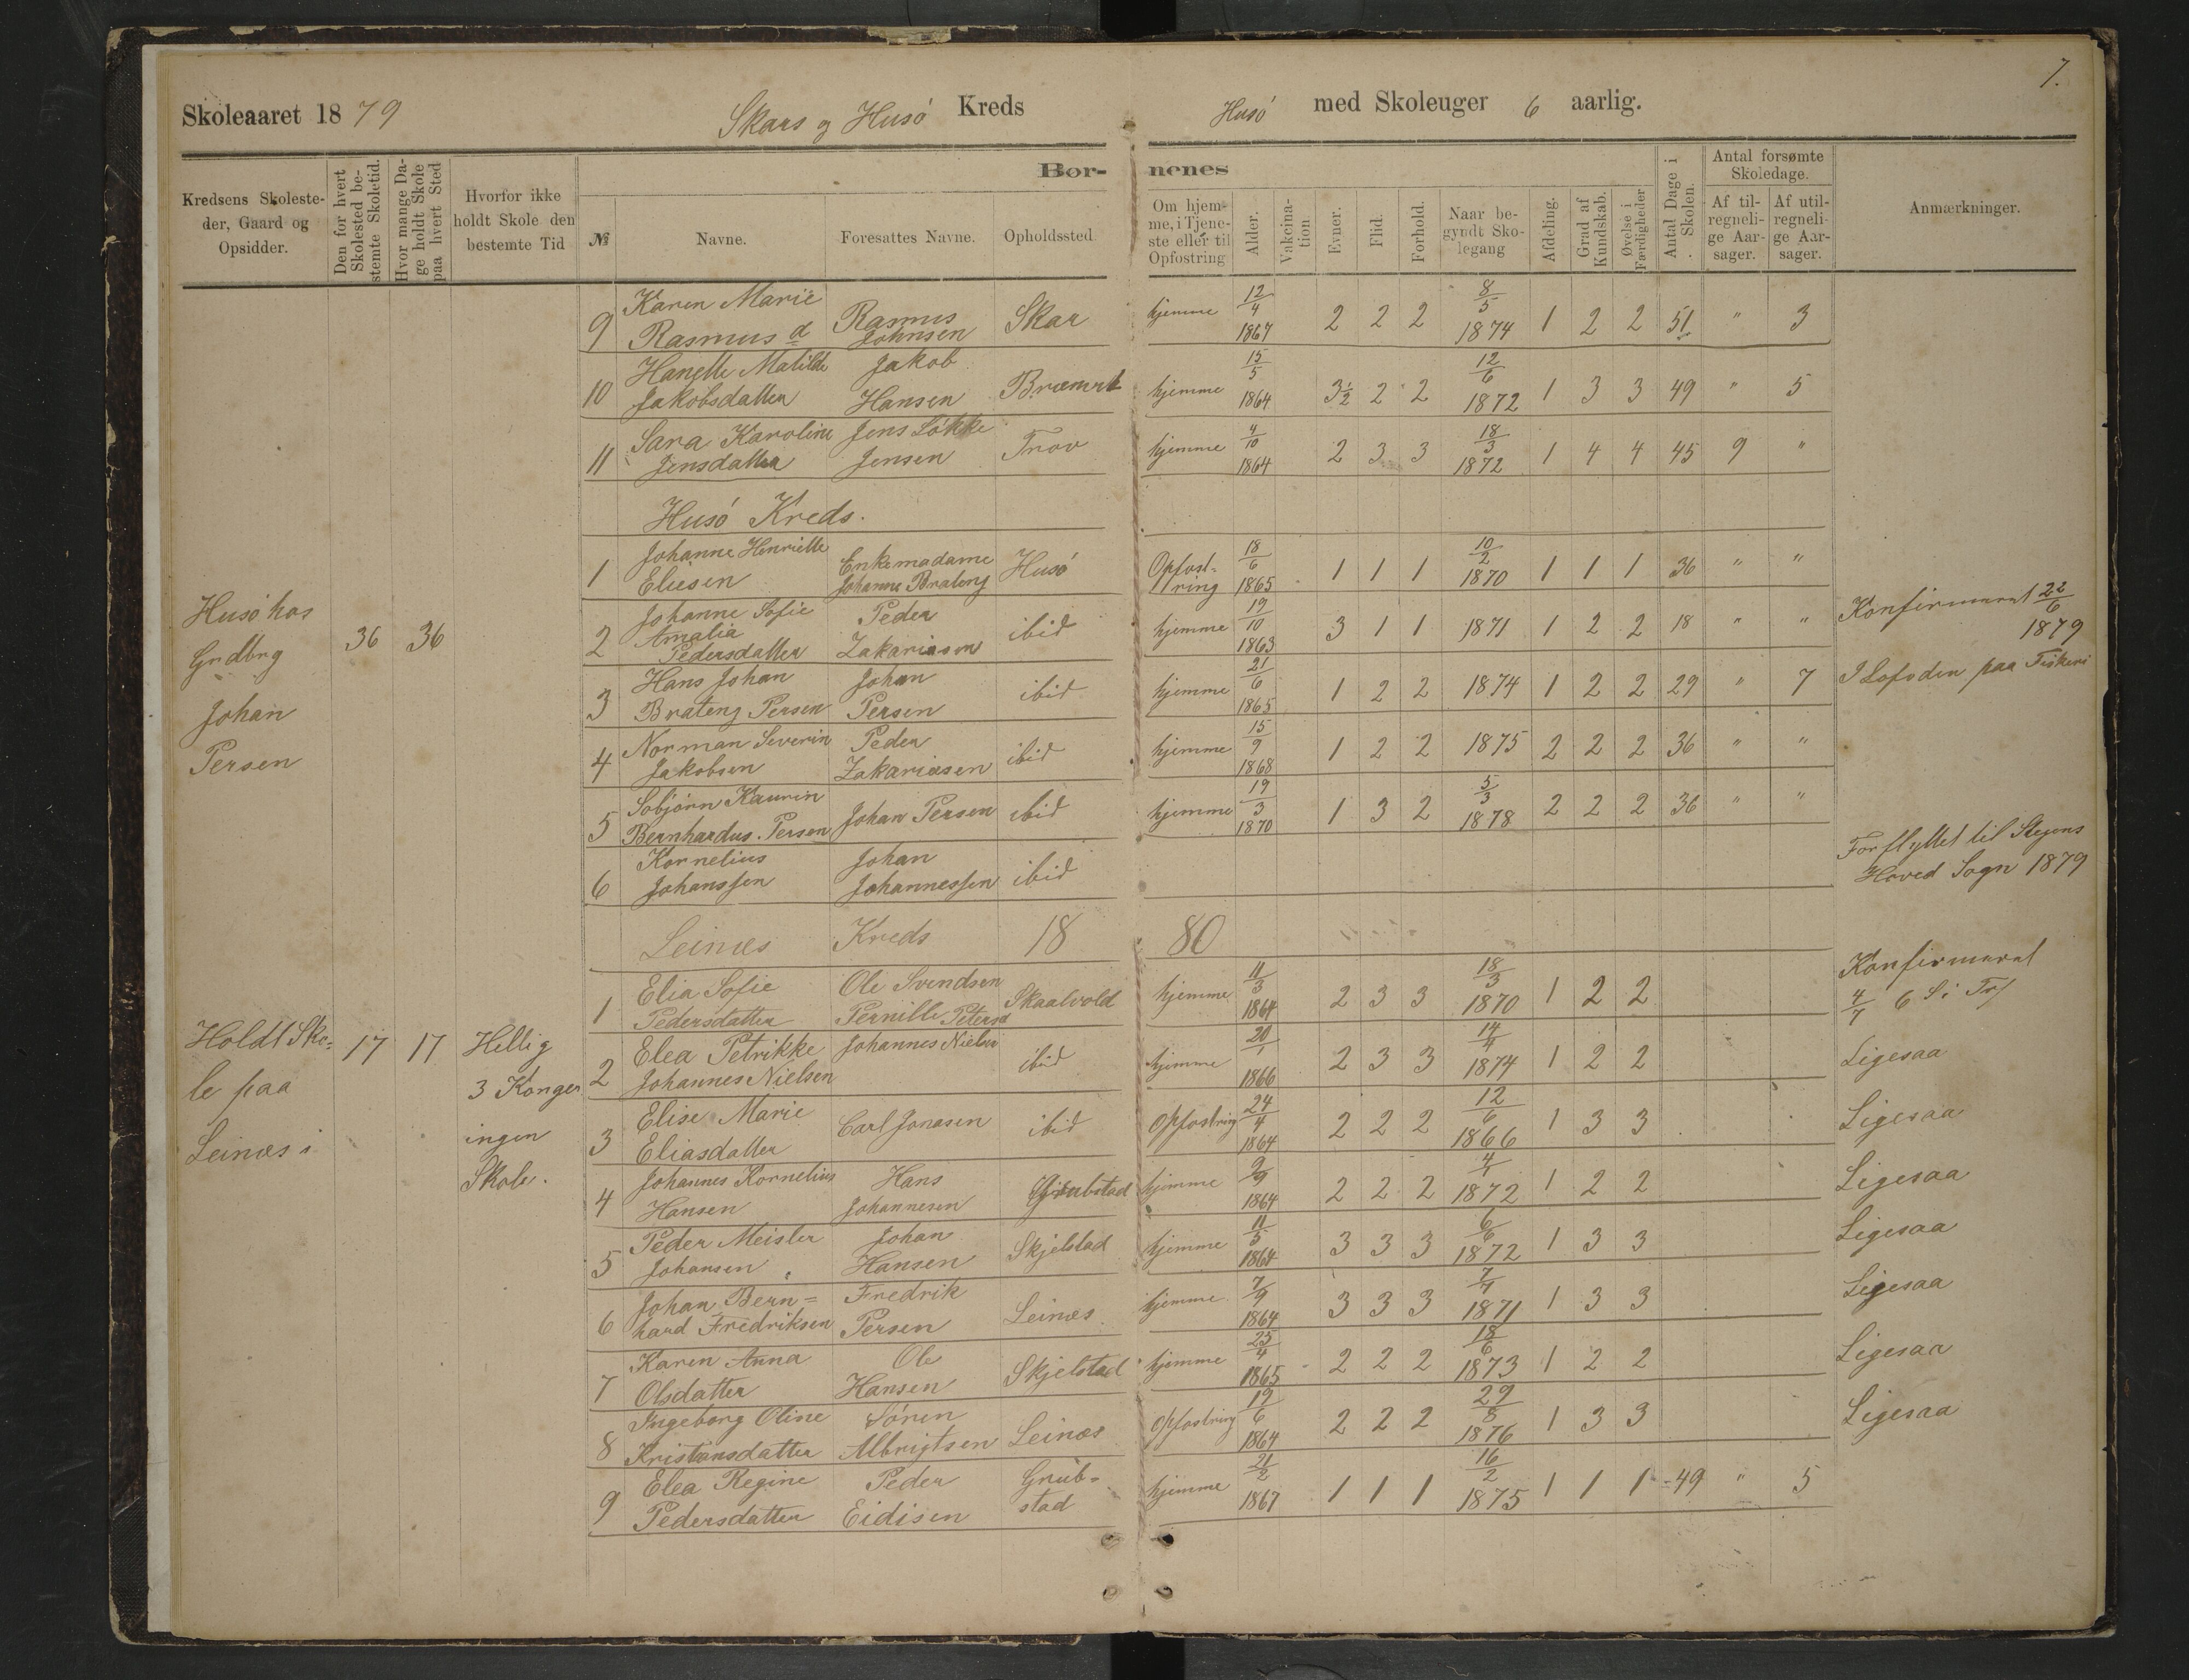 7.
Skoleaaret 1879 Skars og Husö Kreds Husö med Skoleuger 6 aarlig.
Kredsens Skolesteder, Gaard og Opsidder.
Den for hvert Skolested bestemte Skoletid.
Hvor mange Dage holdt Skole paa hvert Sted
Hvorfor ikke holdt Skole den bestemte Tid
Børnenes
№
Navne.
Foresattes Navne.
Opholdssted
Om hjemme, i Tjeneste eller til Opfostring
Alder.
Vakcination
Evner.
Flid.
Forhold.
Naar begyndt Skolegang
Afdeling.
Grad af Kundskab.
Øvelse i Færdigheder
Antal Dage i Skolen.
Antal forsømte Skoledage.
Af tilregnelige Aarsager.
Af utilregnelige Aarsager.
Anmærkninger.
9 Karen Marie Rasmusd Rasmus Johnsen Skar hjemme 12/4 1867 2 2 2 8/5 1874 1 2 2 51 " 3
10 Hanette Matilde Jakobsdatter Jakob Hansen hjemme 15/5 1864 3½ 2 2 12/6 1872 1 3 3 49 " 5
11 Sara Karoline Jensdatter Jens Lökke Jensen Trov hjemme 4/10 1864 2 3 3 18/3 1872 1 4 4 45 9 "
Husö Kreds.
Husö hos Grdbrg Johan Persen 36 36
1 Johanne Henriette Eliesen Enkemadame Johanne Brateng Husö Opfostring 18/6 1865 1 1 1 10/2 1870 1 1 1 36 " "
2 Johanne Sofie Amalia Pedersdatter Peder Zakariasen ibid hjemme 19/10 1863 3 1 1 1871 1 2 2 18 " " Konfirmerat 22/6 1879
3 Hans Johan Brateng Persen Johan Persen ibid hjemme 21/6 1865 1 2 2 1874 1 2 2 29 " 7 I Lofoden paa Fiskeri
4 Norman Severin Jakobsen Peder Zakariasen ibid hjemme 15/9 1868 1 2 2 1875 2 2 2 36 " "
5 Sobjörn Kaurin Bernhardus Persen Johan Persen ibid hjemme 19/3 1870 1 3 2 5/3 1878 2 2 2 36 " "
6 Kornelius Johanssen Johan Johannessen ibid Forflyttet til Stegens Hoved Sogn 1879
Leines Kreds 18 80
Holdt Skole paa Leines i 17 17 Hellig 3 Konger ingen Skole.
1 Elia Sofie Pedersdatter Ole Svendsen Pernille Petersd Skaalvold hjemme 11/3 1864 2 3 3 18/3 1870 1 2 2 Konfirmerat 4/7 6 S i Trf
2 Elea Petrikke Johannes Nielsen Johannes Nielsn ibid hjemme 20/1 1866 2 3 3 14/4 1874 1 2 2 Ligesaa
3 Elise Marie Eliasdatter Carl Jonasen ibid Opfostring 24/4 1864 2 2 2 12/6 1866 1 3 3 Ligesaa
4 Johannes Kornelius Hansen Hans Johannesen hjemme 9/9 1864 2 2 2 4/1 1872 1 2 2 Ligesaa
5 Peder Meisler Johansen Johan Hansen Skjelstad hjemme 11/5 1864 3 3 3 6/6 1872 1 3 3 Ligesaa
6 Johan Bern=hard Fredriksen Fredrik Persen Leines hjemme 7/9 1864 3 3 3 7/4 1871 1 3 3 Ligesaa
7 Karen Anna Olsdatter Ole Hansen Skjelstad hjemme 25/4 1865 2 2 2 18/6 1873 1 2 2 Ligesaa
8 Ingeborg Oline Kristiansdatter Sören Albrigtsen Leines Opfostring 19/6 1864 2 2 2 29/8 1876 1 3 3 Ligesaa
9 Elea Regine Pedersdatter Peder Eidisen Grub=stad hjemme 21/2 1867 1 1 1 16/2 1875 1 1 1 49 " 5